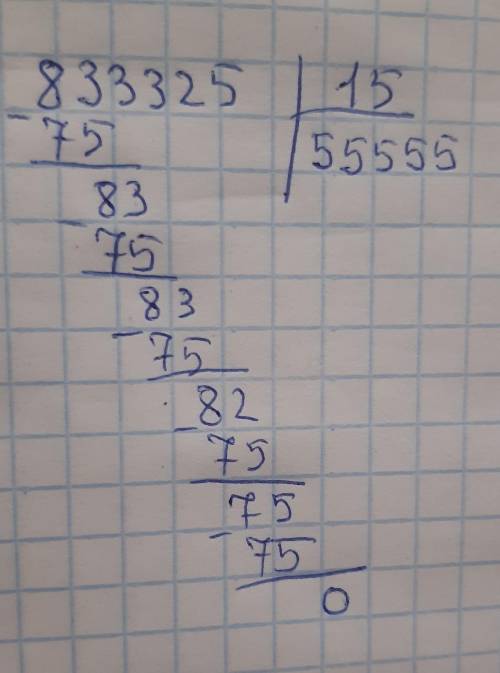 833325 15
- 75 55555
83
- 75
83
- 75
82
- 75
75
- 75
0